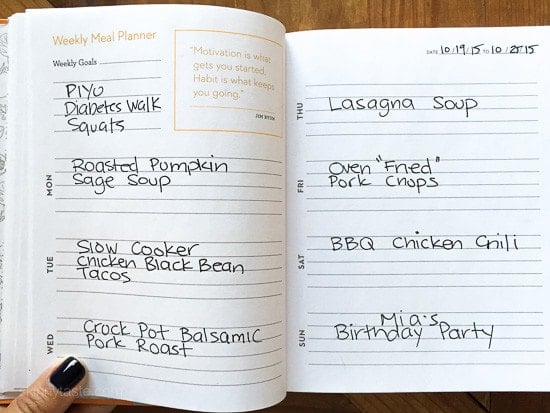 Weekly Meal Planner
Weekly Goals
PIYO
Diabetes Walk
Squats
"Motivation is what
gets you started.
Habit is what keeps
you going."
JIM RYUN
MON
Roasted Pumpkin
Sage Soup
TUE
Slow Cooker
Chicken Black Bean
Tacos
WED
Crock Pot Balsamic
Pork Roast
DATE 10/19/15 TO 10/25/15
THU
Lasagna Soup
FRI
Oven "Fried"
Pork Chops
SAT
BBQ Chicken Chili
SUN
Mia's
Birthday Party